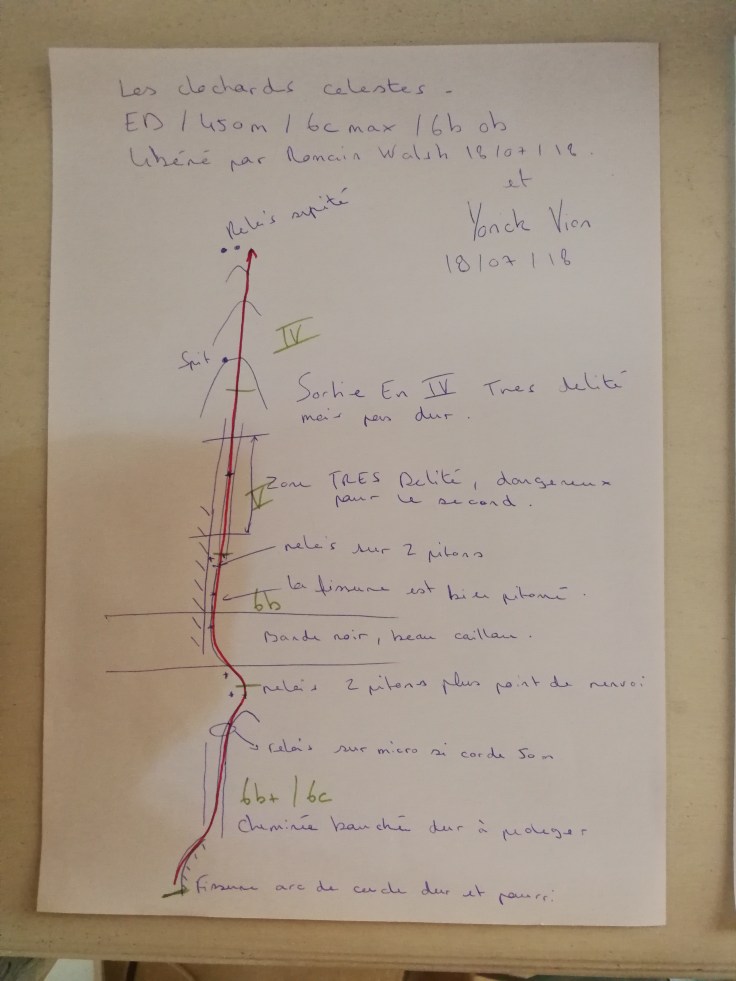 Les clochards celestes -
ED / 450m / 6c max / 6b ob
Libéré par Romain Walsh 18/07/18.
et
Yonck Vion
18/07/18
Relais spité
IV
Spit
Sortie En IV Tres delité
mais pas dur.
Zone TRES Delité, dangereux
pour le second.
V
relais sur 2 pitons
la fissure est bien pitonné.
6b
Bande noir, beau caillou.
relais 2 pitons plus point de renvoi
relais sur micro si corde 50m
6b+ / 6c
Cheminée bouché dur à proteger
Fissure arc de cercle dur et pourri